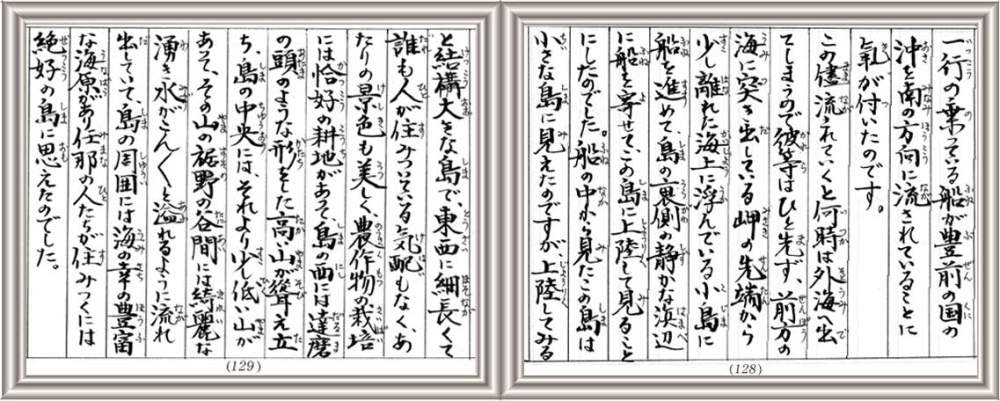 一行の乗っている船が豊前の国の
沖を南の方向に流されていることに
氣が付いたのです。
この儘流されていくと何時は外海へ出
てしまうので彼等はひと先ず、前方の
海に突き出している岬の先端から
少し離れた海上に浮んでいる小島に
船を進めて、島の裏側の静かな浜辺
に船を寄せて、この島に上陸して見ること
にしたのでした。船の中から見たこの島は
小さな島に見えたのですが、上陸してみる
(128)
と結構大きな島で、東西に細長くて
誰も人が住みついている気配もなく、あ
たりの景色も美しく、農作物の栽培
には恰好の耕地があって、島の西には達磨
の頭のような形をした高い山が聳え立
ち、島の中央には、それより少し低い山が
あって、その山の裾野の谷間には綺麗な
湧き水がこんくと溢れるように流れ
出していて、島の周囲には海の幸の豊富
な海原があり任那の人たちが住みつくには
絶好の島に思えたのでした。
(129)